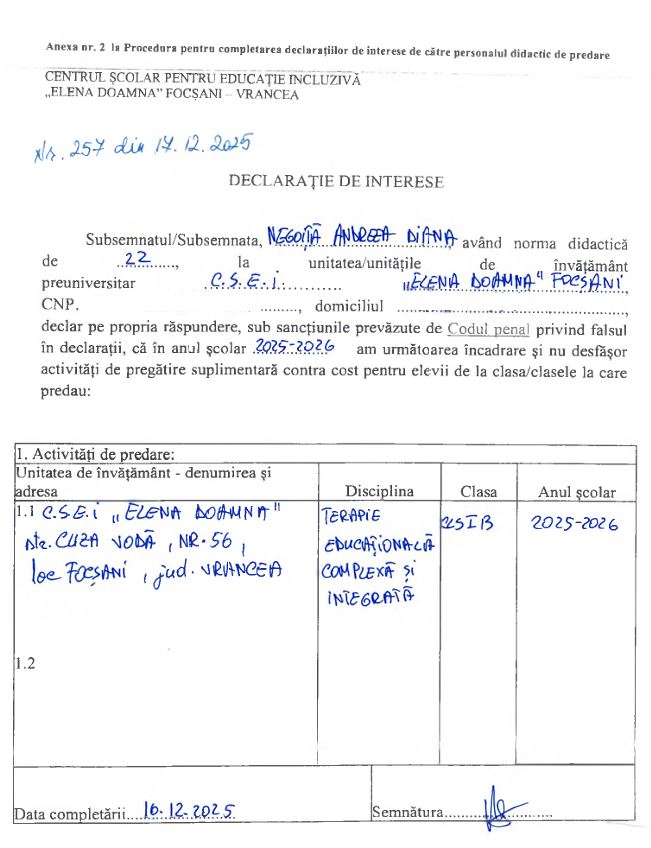 Anexa nr. 2 la Procedura pentru completarea declarațiilor de interese de către personalul didactic de predare
CENTRUL ȘCOLAR PENTRU EDUCAȚIE INCLUZIVĂ
„ELENA DOAMNA” FOCȘANI – VRANCEA
Nr. 257 din 17.12.2025
DECLARAȚIE DE INTERESE
Subsemnatul/Subsemnata, NEGOIȚĂ ANDREEA DIANA, având norma didactică
de ..22........, la unitatea/unitățile de învățământ
preuniversitar .C.S.E.i........... „ELENA DOAMNA" FOCȘANI,
CNP. .........., domiciliul ............................................,
declar pe propria răspundere, sub sancțiunile prevăzute de Codul penal privind falsul
în declarații, că în anul școlar 2025-2026 am următoarea încadrare și nu desfășor
activități de pregătire suplimentară contra cost pentru elevii de la clasa/clasele la care
predau:
1. Activități de predare:
Unitatea de învățământ - denumirea și
adresa Disciplina Clasa Anul școlar
1.1 C.S.E.i „ELENA DOAMNA" TERAPIE 2025-2026
str. CUZA VODĂ, NR.56, EDUCAȚIONALĂ
loc FOCȘANI, jud. VRANCEA COMPLEXĂ ȘI
INTEGRATĂ
1.2
Data completării....16.12.2025 Semnătura......................